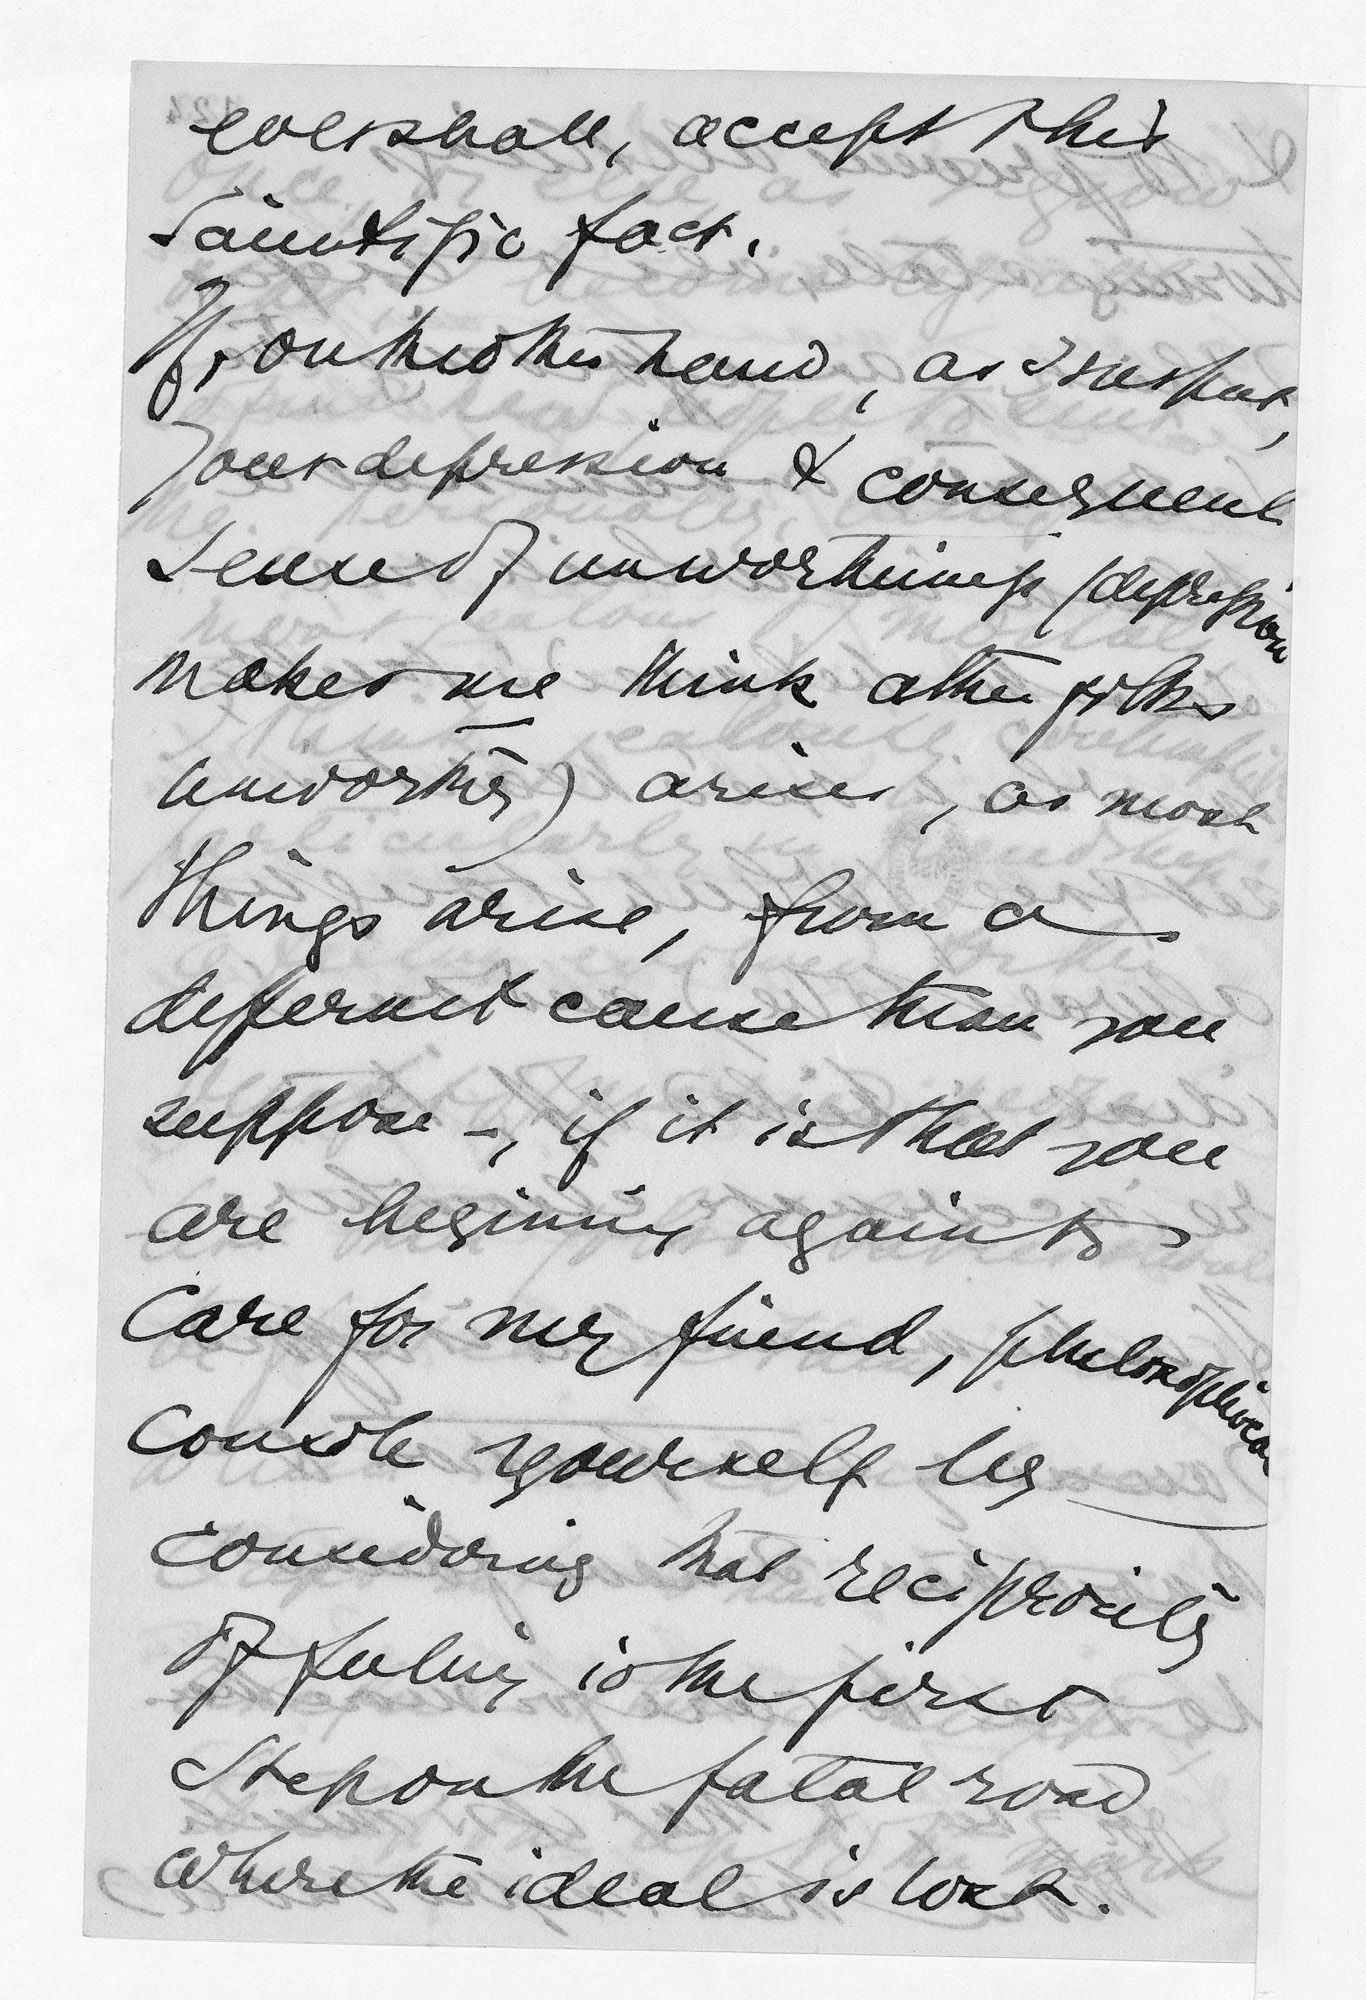 you shall, accept this
scientific fact.
If, on the other hand, as I suspect,
your depression & consequent
sense of unworthiness (depression
makes me think other folks
unworthy) arises, as most
things arise, from a
different cause than you
suppose –, if it is that you
are beginning again to
care for my friend, philosophical
console yourself by
considering that reciprocity
of feeling is the first
step on the fatal road
where the ideal is lost.